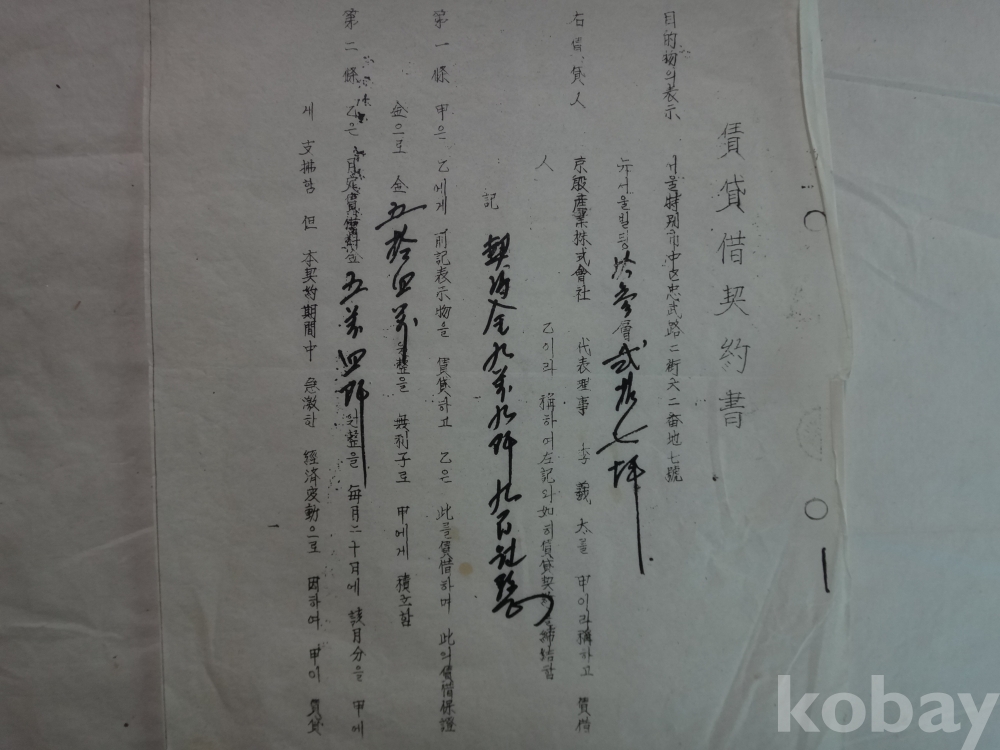 賃貸借契約書
目的物의表示 서울特別市中区忠武路二街六二番地七號
뉴서울빌딩拾參層貳拾七坪
右賃貸人 京殷産業株式會社 代表理事 李義太를 甲이라稱하고 賃借
人 乙이라 稱하여左記와如히賃貸契約을締結함
記 契約金九萬九阡九百원整
第一條 甲은 乙에게 前記表示物을 賃貸하고 乙은 此를賃借하며 此의賃借保證
金으로 金五拾四萬원整을 無利子로 甲에게 積立함
第二條 乙은 月定賃借料金五萬四阡원整을 每月二十日에 該月分을 甲에
게 支拂함 但 本契約期間中 急激한 經済変動으로 因하여 甲이 賃貸
kobay